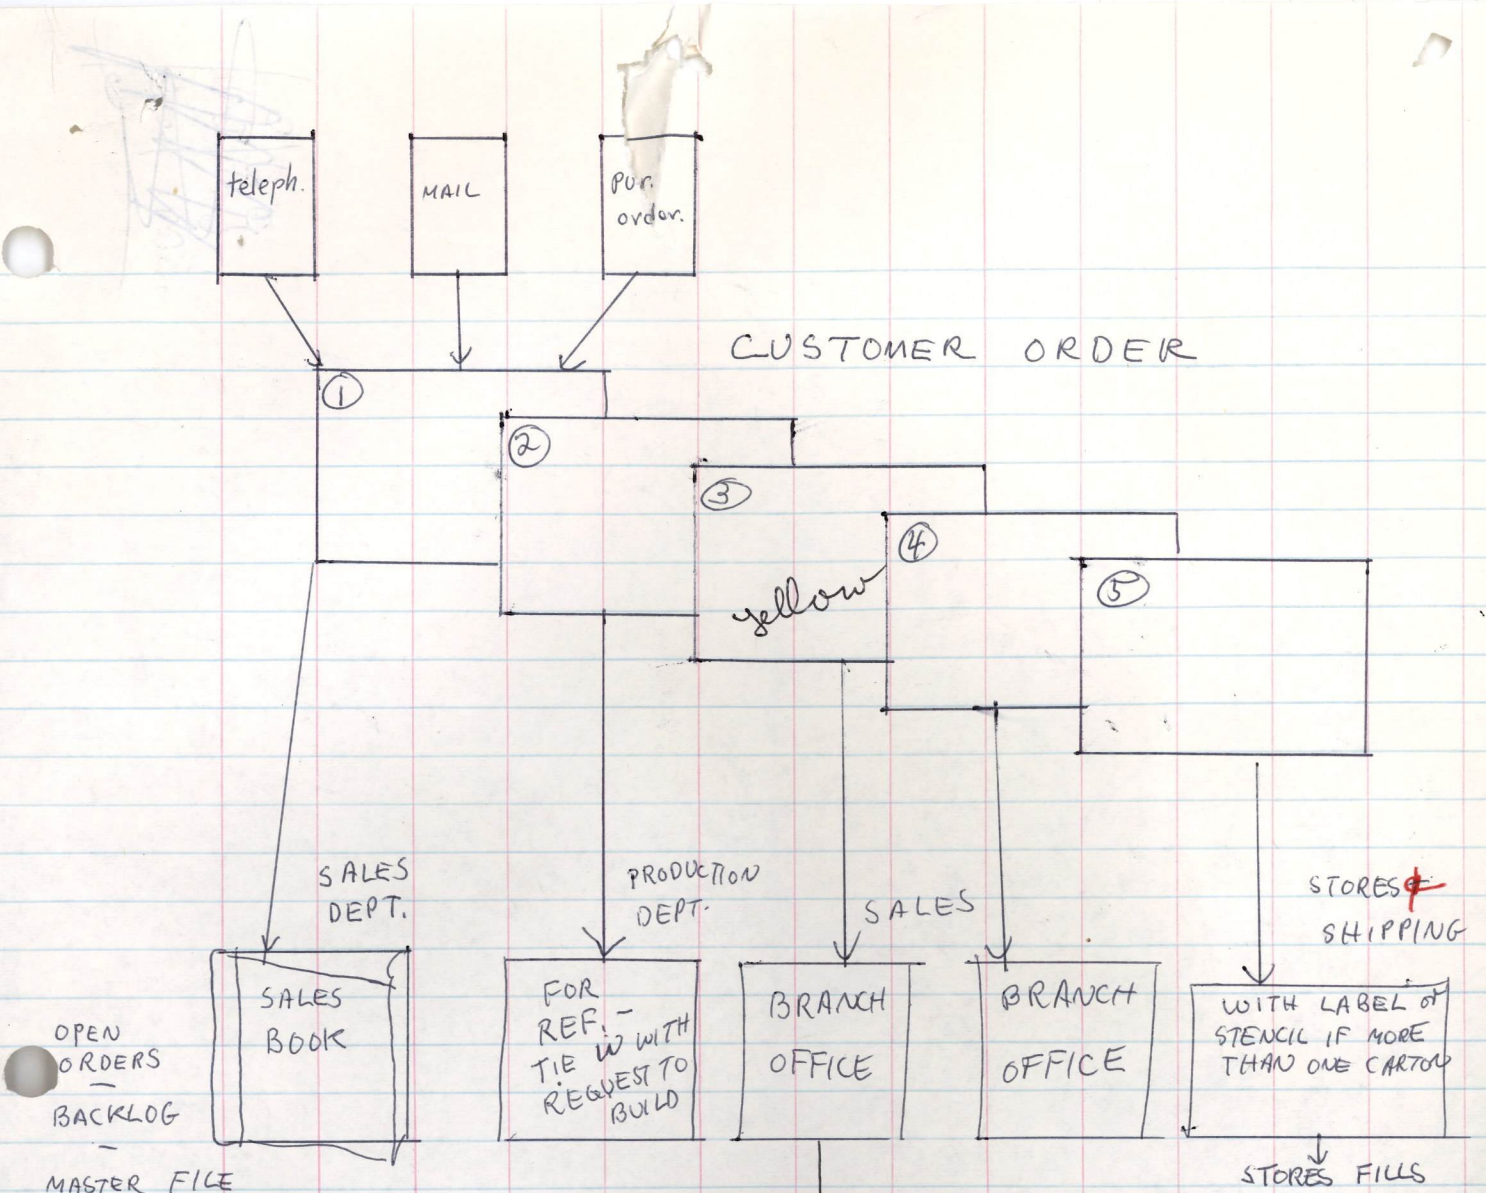 teleph.
MAIL
Pur.
order.
CUSTOMER ORDER
1
2
3
4
yellow
5
SALES
DEPT.
PRODUCTION
DEPT.
SALES
STORES &
SHIPPING
SALES
BOOK
FOR
REF. -
TIE IN WITH
REQUEST TO
BUILD
BRANCH
OFFICE
BRANCH
OFFICE
WITH LABEL or
STENCIL IF MORE
THAN ONE CARTON
OPEN
ORDERS
—
BACKLOG
—
MASTER FILE
STORES FILLS